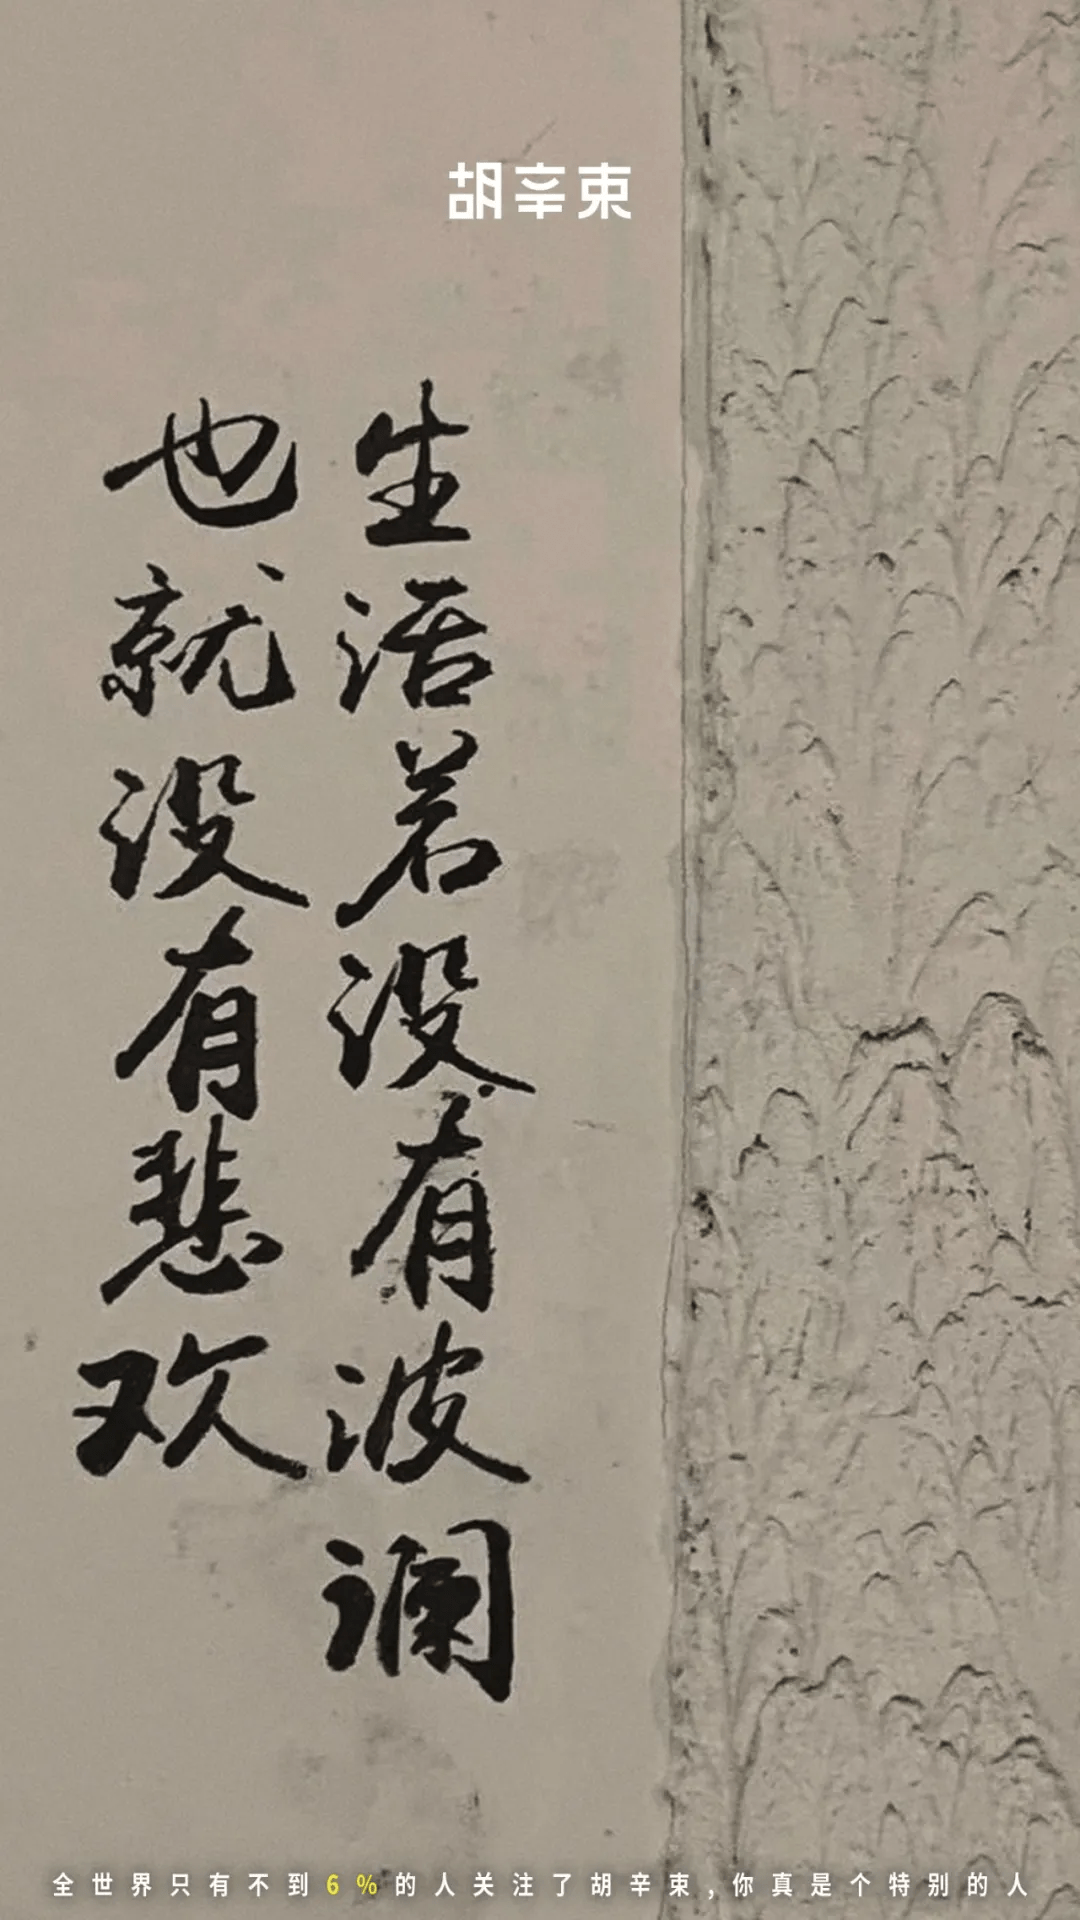 胡辛束
生活若没有波澜
也就没有悲欢
全世界只有不到6%的人关注了胡辛束,你真是个特别的人